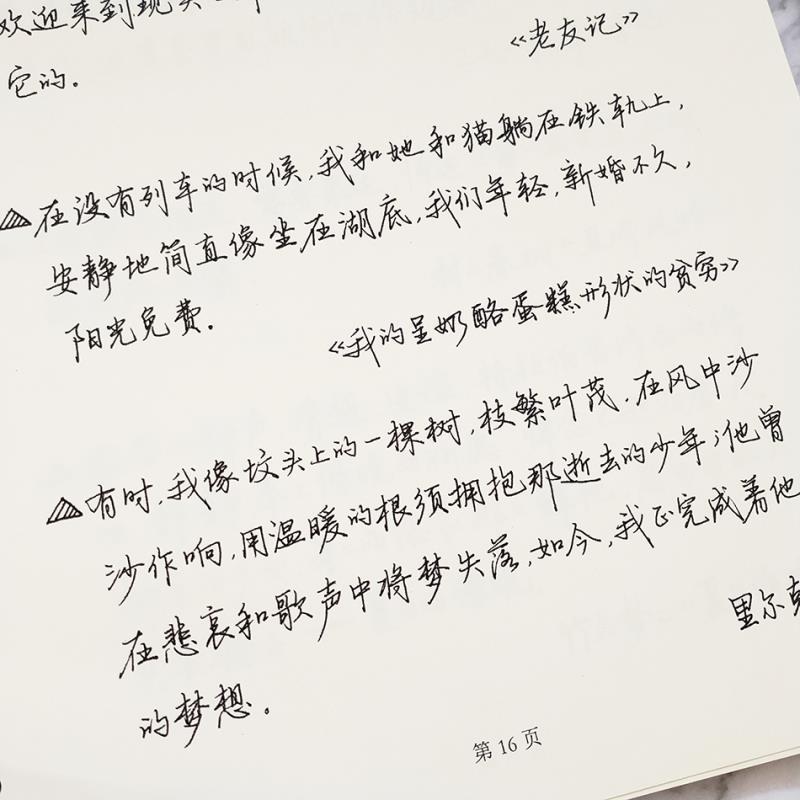 欢迎来到现实
它的。
《老友记》
在没有列车的时候，我和她和猫躺在铁轨上，
安静地简直像坐在湖底，我们年轻，新婚不久，
阳光免费。
《我的呈奶酪蛋糕形状的贫穷》
有时，我像坟头上的一棵树，枝繁叶茂，在风中沙
沙作响，用温暖的根须拥抱那逝去的少年；他曾
在悲哀和歌声中将梦失落，如今，我正完成着他
里尔克
的梦想。
第 16 页